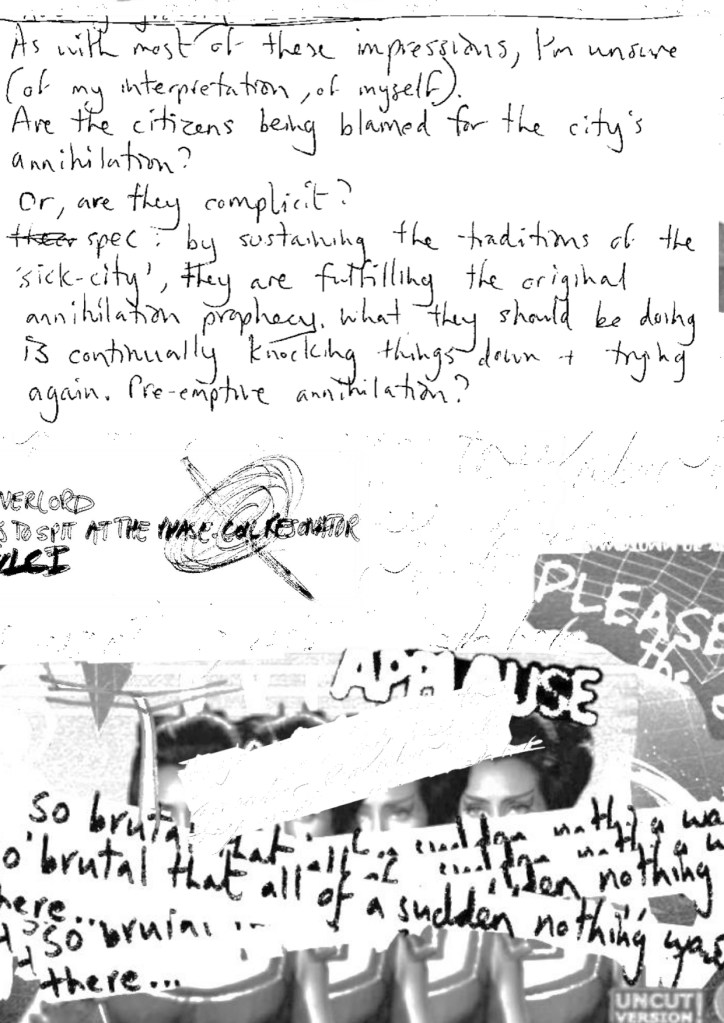 As with most of these impressions, I'm unsure
(of my interpretation, of myself).
Are the citizens being blamed for the city's
annihilation?
Or, are they complicit?
spec: by sustaining the traditions of the
'sick-city', they are fulfilling the original
annihilation prophecy. What they should be doing
is continually knocking things down + trying
again. Pre-emptive annihilation?
VERLORD
S TO SPIT AT THE PHASE-COIL RESONATOR
ULCI
PLEASE
th
APPLAUSE
So brutal that all of a sudden nothing wa
o brutal that all of a sudden nothing w
here...
So brutal ... of a sudden nothing ware
there...
UNCUT
VERSION!